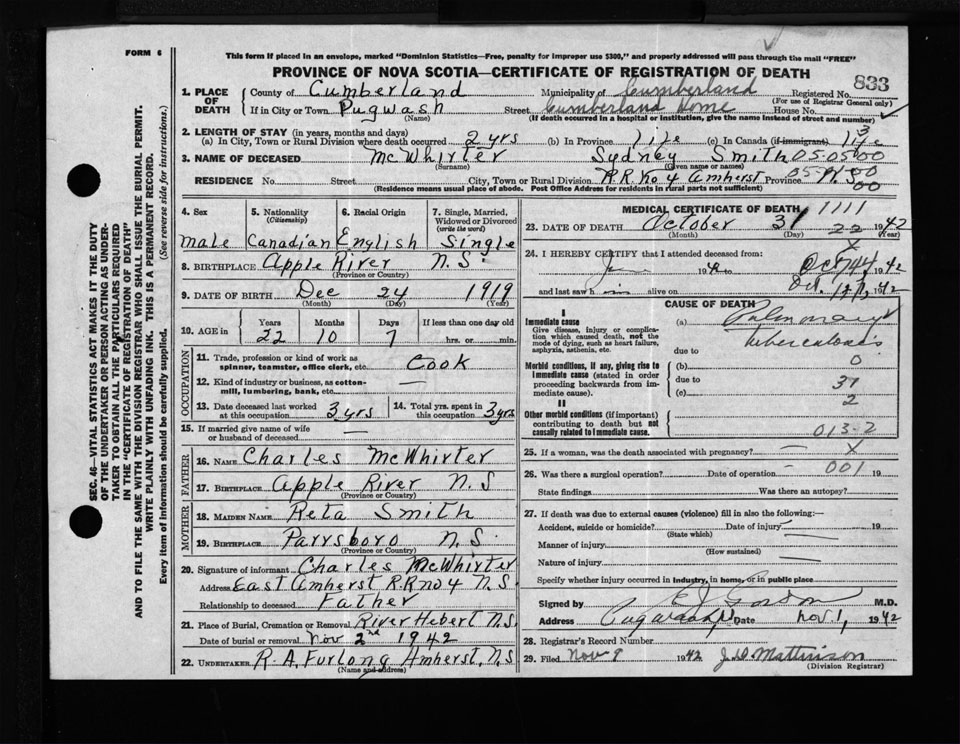 FORM 6
This form if placed in an envelope, marked "Dominion Statistics—Free, penalty for improper use $300," and properly addressed will pass through the mail "FREE"
PROVINCE OF NOVA SCOTIA—CERTIFICATE OF REGISTRATION OF DEATH
833
SEC. 46—VITAL STATISTICS ACT MAKES IT THE DUTY
OF THE UNDERTAKER OR PERSON ACTING AS UNDER-
TAKER TO OBTAIN ALL THE PARTICULARS REQUIRED
IN THE "CERTIFICATE OF REGISTRATION OF DEATH"
AND TO FILE THE SAME WITH THE DIVISION REGISTRAR WHO SHALL ISSUE THE BURIAL PERMIT.
WRITE PLAINLY WITH UNFADING INK. THIS IS A PERMANENT RECORD.
Every item of information should be carefully supplied. (See reverse side for instructions.)
1. PLACE OF DEATH
County of Cumberland Municipality of Cumberland Registered No.
(For use of Registrar General only)
If in City or Town Pugwash Street Cumberland Home House No.
(Name) (If death occurred in a hospital or institution, give the name instead of street and number)
2. LENGTH OF STAY (in years, months and days)
(a) In City, Town or Rural Division where death occurred 2 yrs (b) In Province life (c) In Canada (if immigrant) life
3. NAME OF DECEASED McWhirter Sydney Smith 05-05000
(Surname) (Given name or names)
RESIDENCE No. Street City, Town or Rural Division R.R. no 4 Amherst Province N.S.
(Residence means usual place of abode. Post Office Address for residents in rural parts not sufficient)
4. Sex
male
5. Nationality (Citizenship)
Canadian
6. Racial Origin
English
7. Single, Married, Widowed or Divorced (write the word)
Single
8. BIRTHPLACE Apple River N.S.
(Province or Country)
9. DATE OF BIRTH Dec 24 1919
(Month) (Day) (Year)
10. AGE in Years Months Days If less than one day old
22 10 7 hrs. or min.
OCCUPATION
11. Trade, profession or kind of work as spinner, teamster, office clerk, etc. Cook
12. Kind of industry or business, as cotton-mill, lumbering, bank, etc. —
13. Date deceased last worked at this occupation 3 yrs
14. Total yrs. spent in this occupation 3 yrs
15. If married give name of wife or husband of deceased —
FATHER
16. NAME Charles McWhirter
17. BIRTHPLACE Apple River N.S
(Province or Country)
MOTHER
18. MAIDEN NAME Reta Smith
19. BIRTHPLACE Parrsboro N.S.
(Province or Country)
20. Signature of informant Charles McWhirter
Address East Amherst R.R no 4 N.S.
Relationship to deceased Father
21. Place of Burial, Cremation or Removal River Hebert N.S.
Date of burial or removal Nov 2nd 1942
22. UNDERTAKER R.A. Furlong Amherst, N.S
(Name and address)
MEDICAL CERTIFICATE OF DEATH 1111
23. DATE OF DEATH October 31 1942
(Month) (Day) (Year)
24. I HEREBY CERTIFY that I attended deceased from:
June 19 to Oct 1942
and last saw him alive on Oct. 1942
CAUSE OF DEATH
I
Immediate cause
Give disease, injury or complication which caused death, not the mode of dying, such as heart failure, asphyxia, asthenia, etc.
(a) Pulmonary
tuberculosis
due to
Morbid conditions, if any, giving rise to immediate cause (stated in order proceeding backwards from immediate cause).
(b) 0
due to 31
(c) 2
II
Other morbid conditions (if important) contributing to death but not causally related to immediate cause.
013-2
25. If a woman, was the death associated with pregnancy? — X
26. Was there a surgical operation? — Date of operation 001 19
State findings Was there an autopsy?
27. If death was due to external causes (violence) fill in also the following:—
Accident, suicide or homicide? Date of injury — 19
(State which)
Manner of injury —
(How sustained)
Nature of injury —
Specify whether injury occurred in industry, in home, or in public place
Signed by E J Gordon M.D.
Address Pugwash Date Nov. 1, 1942
28. Registrar's Record Number
29. Filed Nov 9 1942 J.D. Mattinson
(Division Registrar)